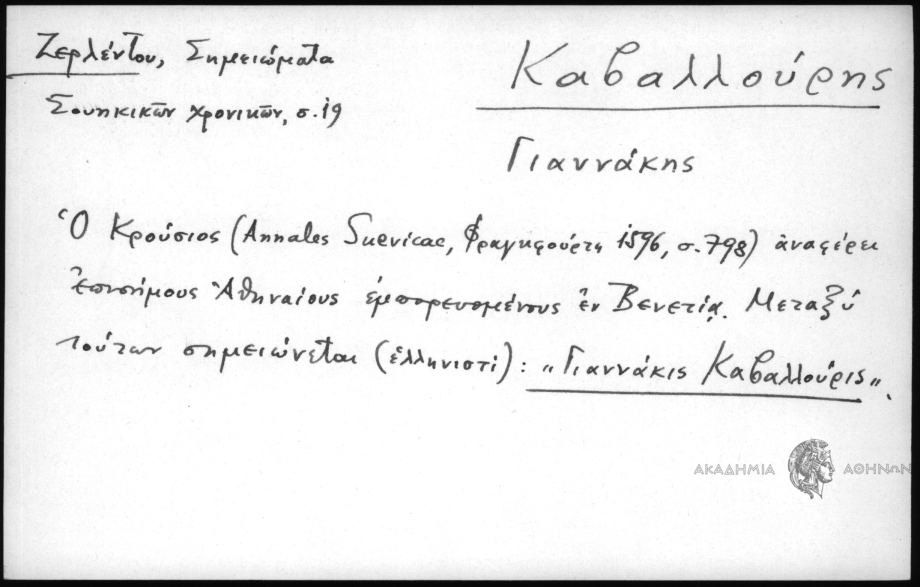 Ζερλέντου, Σημειώματα
Σουηκικῶν χρονικῶν, σ. 19
Καβαλλούρης
Γιαννάκης
Ὁ Κρούσιος (Annales Suevicae, Φραγκφούρτη 1596, σ. 798) ἀναφέρει
ἐπισήμους Ἀθηναίους ἐμπορευομένους ἐν Βενετίᾳ. Μεταξύ
τούτων σημειώνεται (ἑλληνιστί): „Γιαννάκις Καβαλλούρις„.
ΑΚΑΔΗΜΙΑ ΑΘΗΝΩΝ